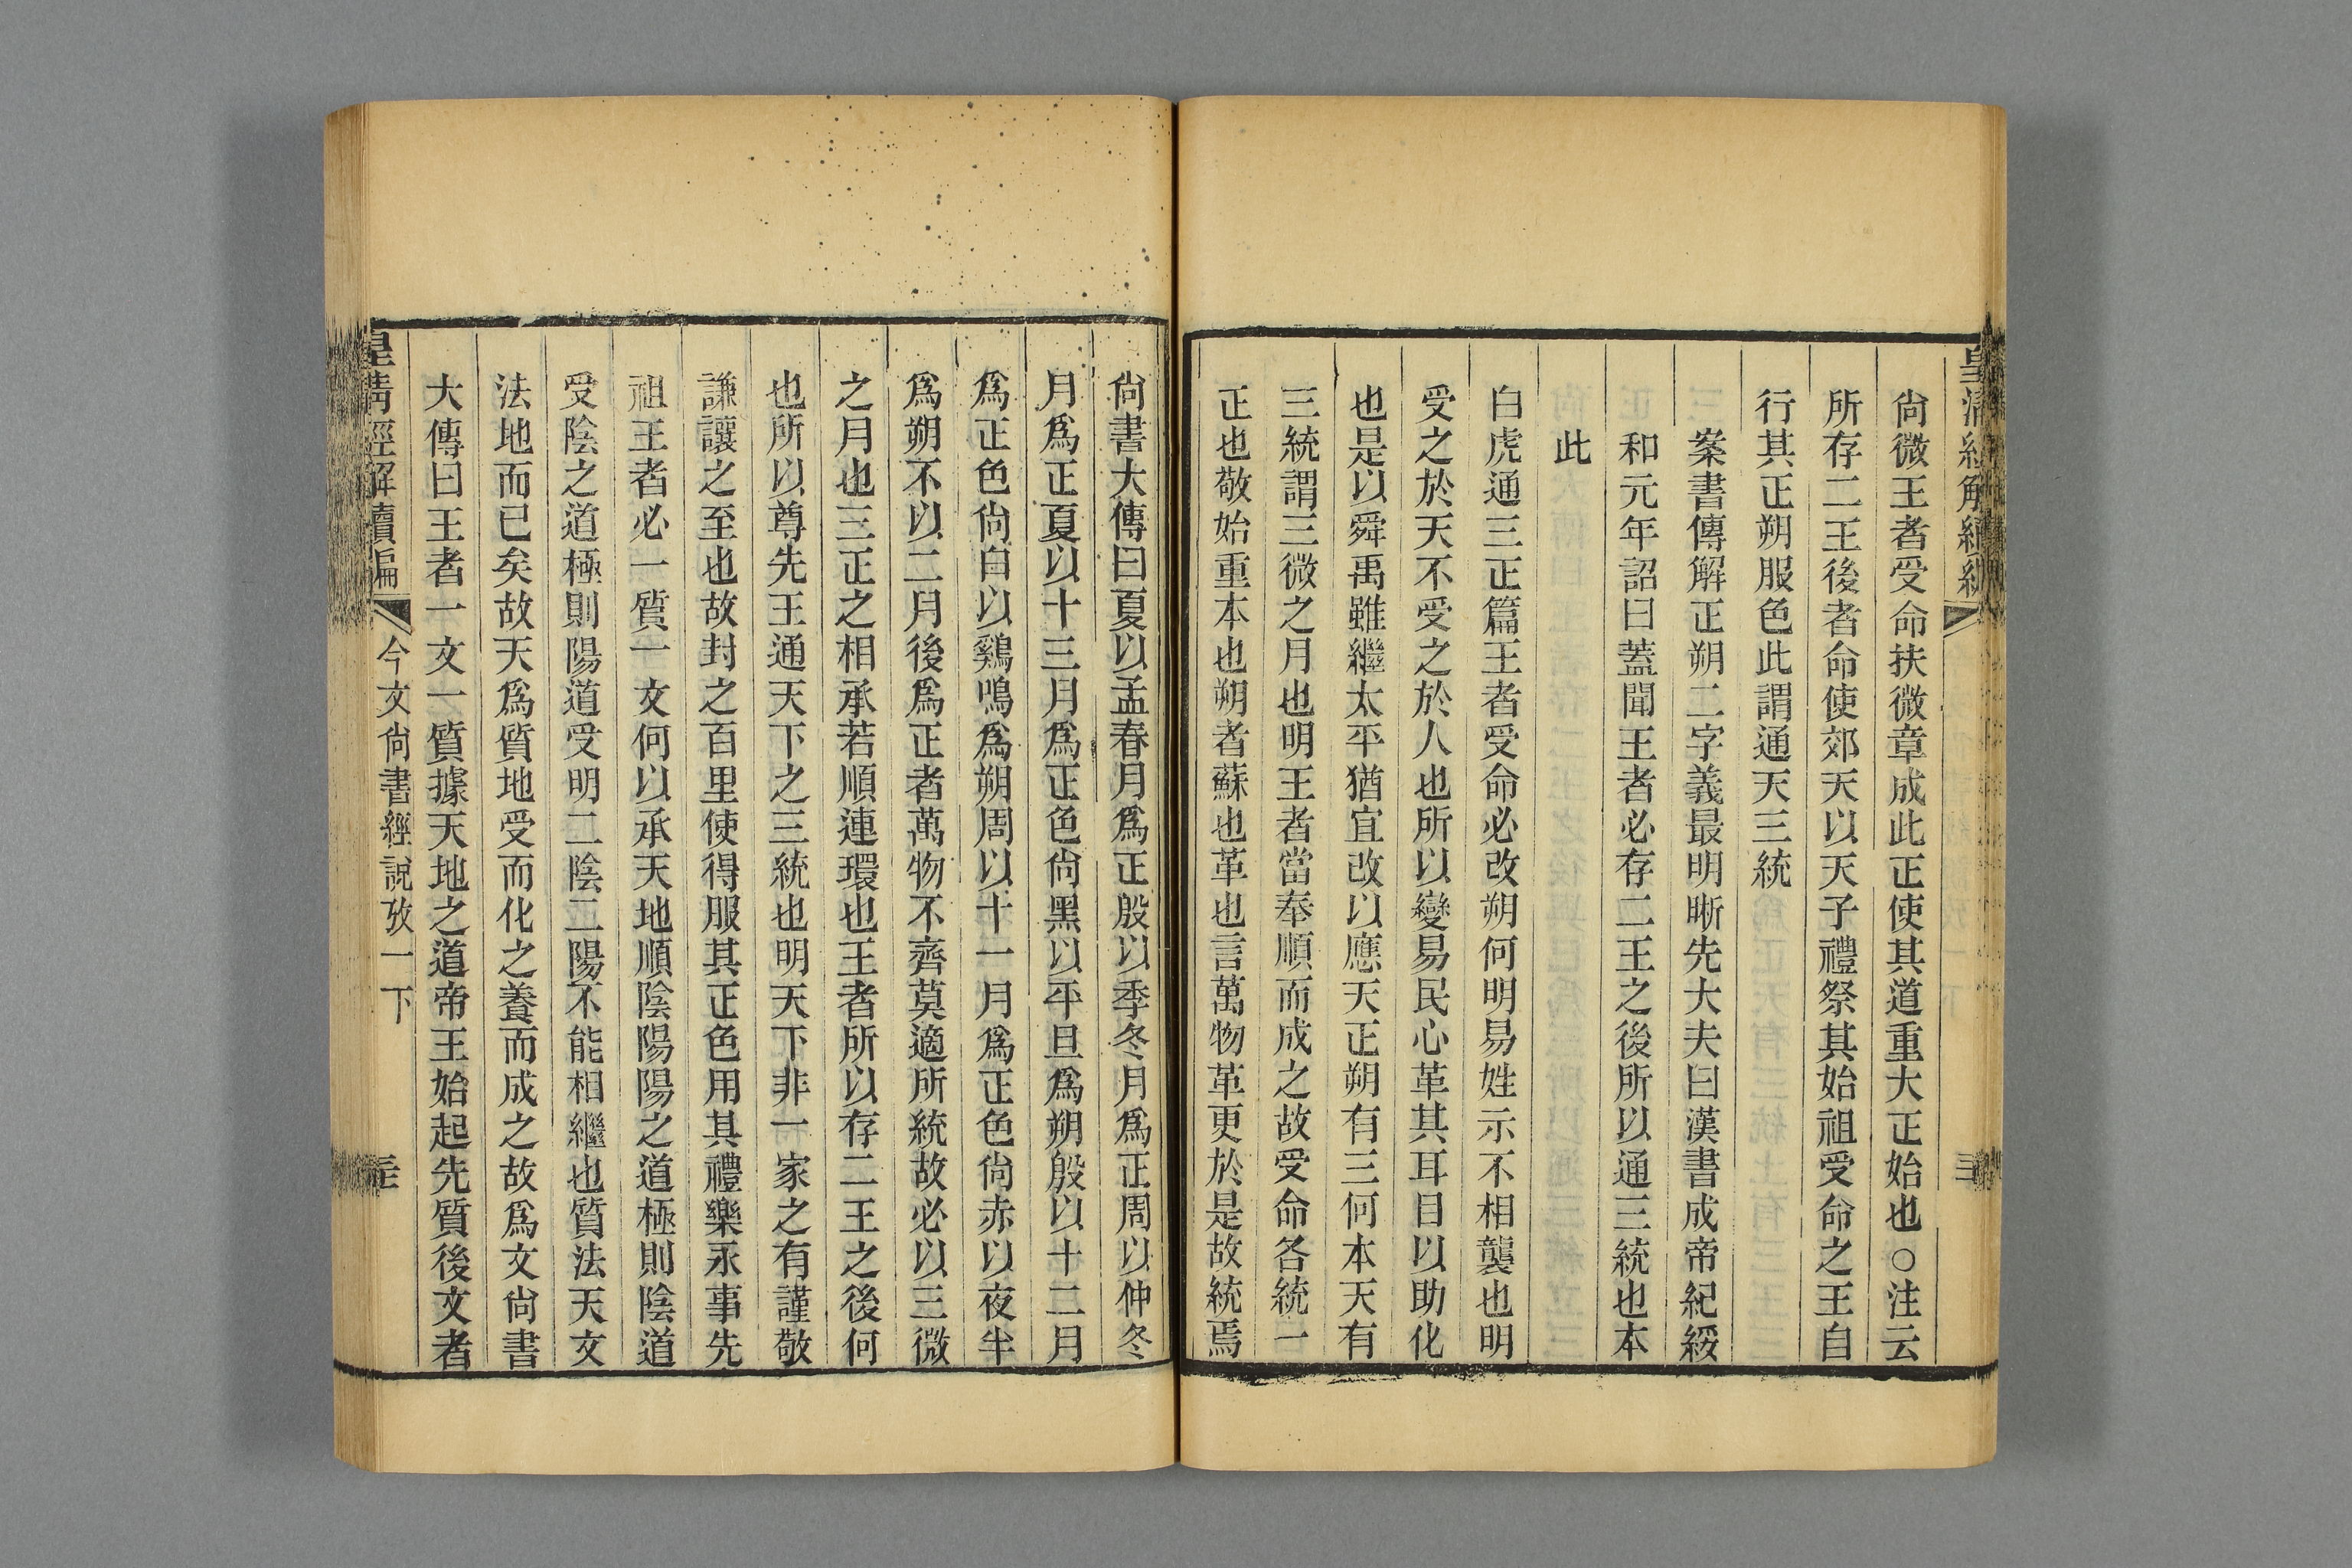 皇清經解續編
尙微王者受命扶微章成此正使其道重大正始也○注云
所存二王後者命使郊天以天子禮祭其始祖受命之王自
行其正朔服色此謂通天三統
案書傳解正朔二字義最明晰先大夫曰漢書成帝紀綏
和元年詔曰蓋聞王者必存二王之後所以通三統也本
此
白虎通三正篇王者受命必改朔何明易姓示不相襲也明
受之於天不受之於人也所以變易民心革其耳目以助化
也是以舜禹雖繼太平猶宜改以應天正朔有三何本天有
三統謂三微之月也明王者當奉順而成之故受命各統一
正也敬始重本也朔者蘇也革也言萬物革更於是故統焉
尙書大傳曰夏以孟春月爲正殷以季冬月爲正周以仲冬
月爲正夏以十三月爲正色尙黑以平旦爲朔殷以十二月
爲正色尙白以鷄鳴爲朔周以十一月爲正色尙赤以夜半
爲朔不以二月後爲正者萬物不齊莫適所統故必以三微
之月也三正之相承若順連環也王者所以存二王之後何
也所以尊先王通天下之三統也明天下非一家之有謹敬
謙讓之至也故封之百里使得服其正色用其禮樂永事先
祖王者必一質一文何以承天地順陰陽陽之道極則陰道
受陰之道極則陽道受明二陰二陽不能相繼也質法天文
法地而已矣故天爲質地受而化之養而成之故爲文尙書
大傳曰王者一文一質據天地之道帝王始起先質後文者
皇清經解續編 今文尙書經說攷一下